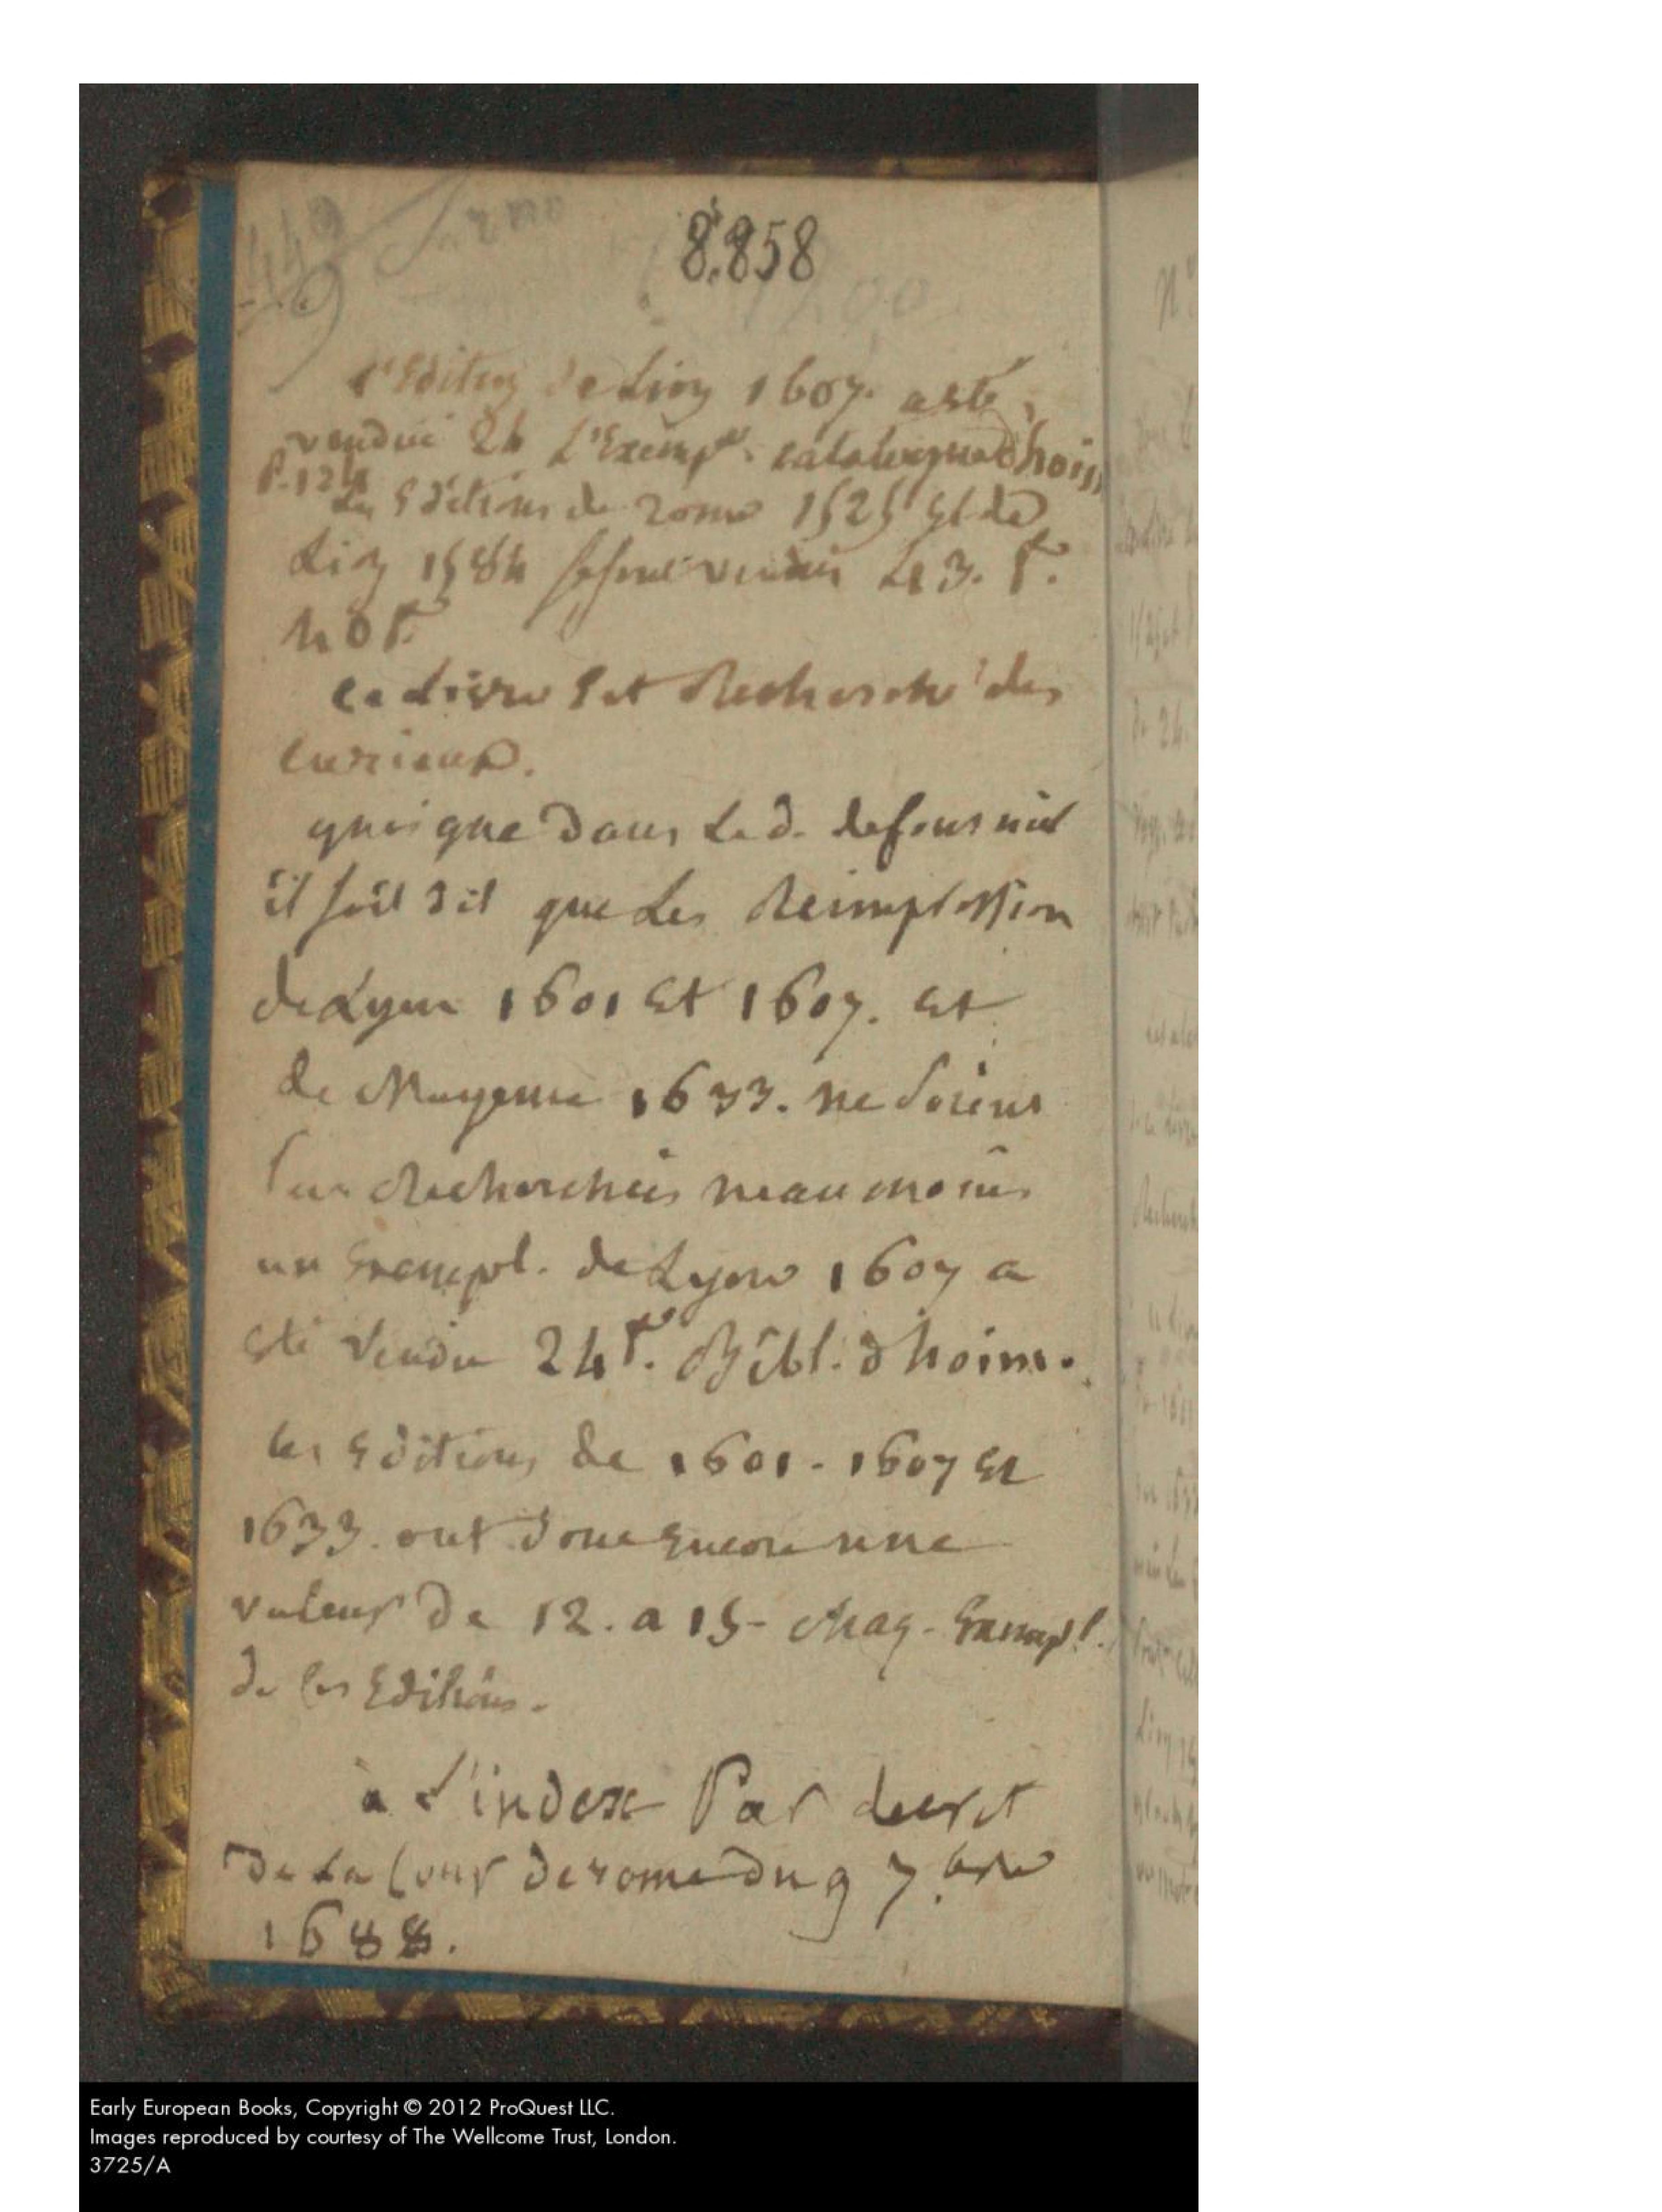 449
8.858
l'Edition de Lion 1607. a esté
vendue 24 L'Exempl. catalogue d'hoim
P. 124
Les Editions de rome 1525 Et de
Lion 1584 se sont vendus 43.
40
ce Livre Est Recherché des
curieux.
quoique dans Le d. de
il soit dit que Les Reimpression
de Lyon 1601 Et 1607. Et
de Mayence 1633. ne soient
pas Recherchées neaumoins
un Exempl. de Lyon 1607 a
esté vendu 24 Bibl. d'hoim.
les Editions de 1601 - 1607 Et
1633. ont donc Encore une
valeur de 12. a 15 - chaq. Exempl.
de ces Editions.
à L'index Par decret
De La Cour de rome du 9 7.bre
1688.
Early European Books, Copyright © 2012 ProQuest LLC.
Images reproduced by courtesy of The Wellcome Trust, London.
3725/A